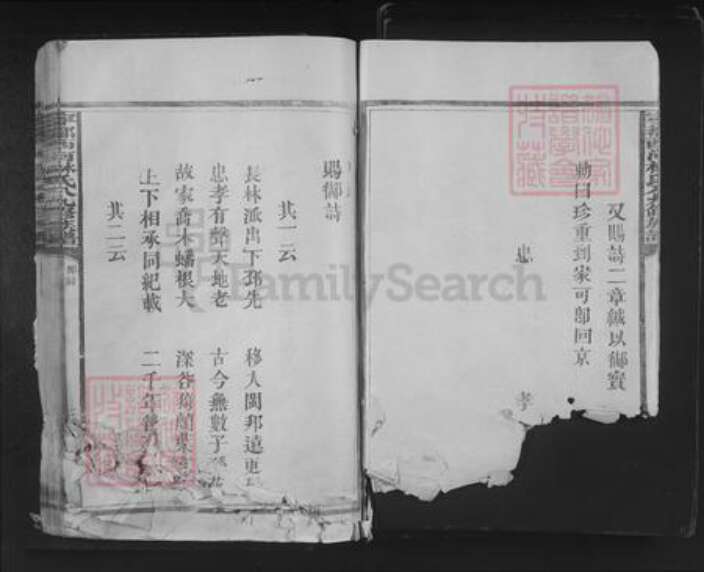 又賜詩二章緘以御寶
勅曰珍重到家可即回京
忠 孝
賜御詩
其一云
長林派出下邳先 移入閩邦遠更
忠孝有聲天地老 古今無數子
故家喬木蟠根大 深谷
上下相承同紀載 二千年
其二云
FamilySearch